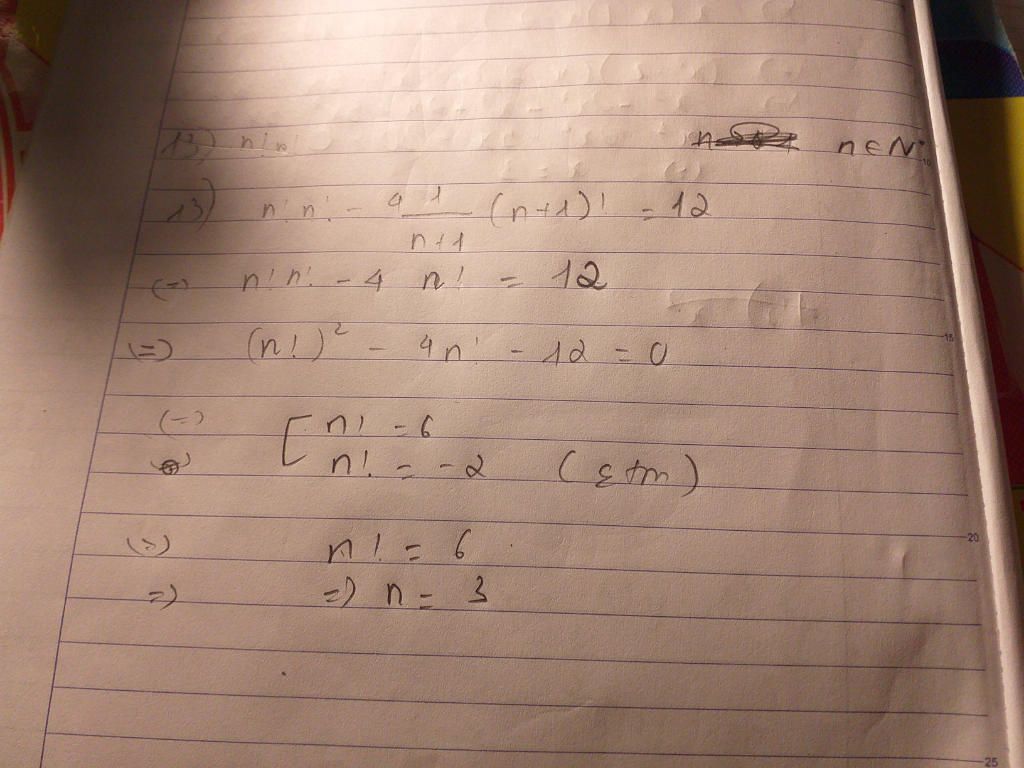 13) n! n! n ∈ N*
13) n! n! - 4 \frac{1}{n+1} (n+1)! = 12
(=) n! n! - 4 n! = 12
(=) (n!)² - 4n! - 12 = 0
(=) [ n! = 6
n! = -2 (ktm)
(=) n! = 6
=) =) n = 3
10
15
20
25